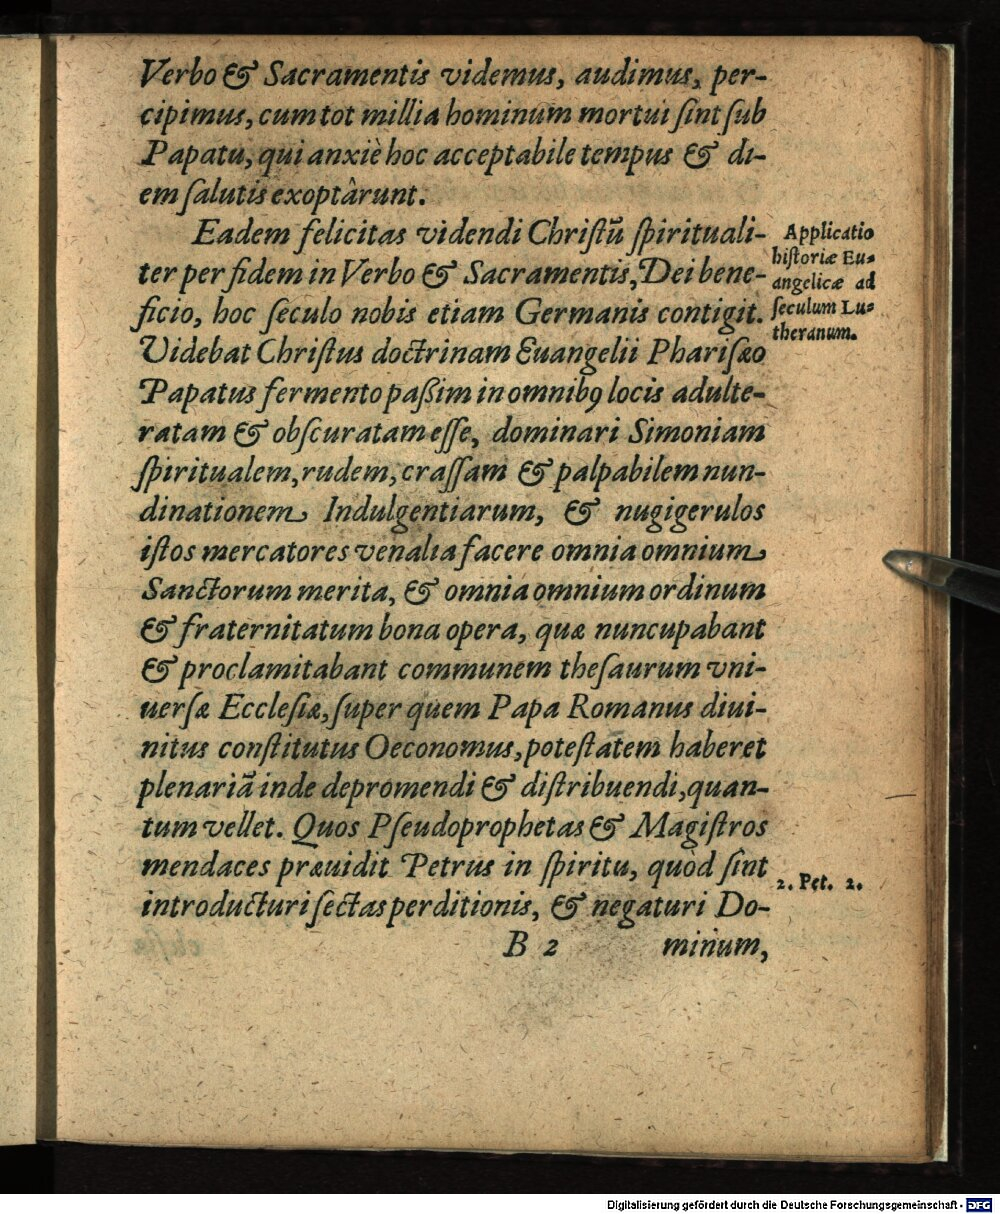 Verbo & Sacramentis videmus, audimus, per-
cipimus, cum tot millia hominum mortui ſint ſub
Papatu, qui anxiè hoc acceptabile tempus & di-
em ſalutis exoptârunt.
Eadem felicitas videndi Chriſtũ ſpirituali-
ter per fidem in Verbo & Sacramentis, Dei bene-
ficio, hoc ſeculo nobis etiam Germanis contigit.
Videbat Chriſtus doctrinam Euangelii Phariſæo
Papatus fermento paßim in omnibꝯ locis adulte-
ratam & obſcuratam eſſe, dominari Simoniam
ſpiritualem, rudem, craſſam & palpabilem nun-
dinationem Indulgentiarum, & nugigerulos
iſtos mercatores venalia facere omnia omnium
Sanctorum merita, & omnia omnium ordinum
& fraternitatum bona opera, quæ nuncupabant
& proclamitabant communem theſaurum vni-
uerſæ Eccleſiæ, ſuper quem Papa Romanus diui-
nitus conſtitutus Oeconomus, poteſtatem haberet
plenariã inde depromendi & diſtribuendi, quan-
tum vellet. Quos Pſeudoprophetas & Magiſtros
mendaces præuidit Petrus in ſpiritu, quòd ſint
introducturi ſectas perditionis, & negaturi Do-
B 2 minum,
Applicatio
hiſtoriæ Eu-
angelicæ ad
ſeculum Lu-
theranum.
2. Pet. 2.
Digitalisierung gefördert durch die Deutsche Forschungsgemeinschaft - DFG